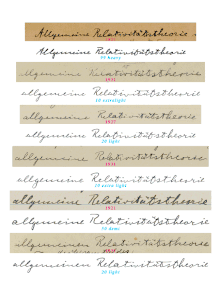 Allgemeine Relativitätstheorie
Allgemeine Relativitätstheorie
Allgemeine Relativitätstheorie
allgemeine Relativitätstheorie
60 extralight
allgemeine Relativitätstheorie
allgemeine Relativitätstheorie
20 light
allgemeine Relativitätstheorie
allgemeine Relativitätstheorie
20 extra light
allgemeine Relativitätstheorie
allgemeine Relativitätstheorie
allgemeinen Relativitätstheorie
allgemeinen Relativitätstheorie
20 light